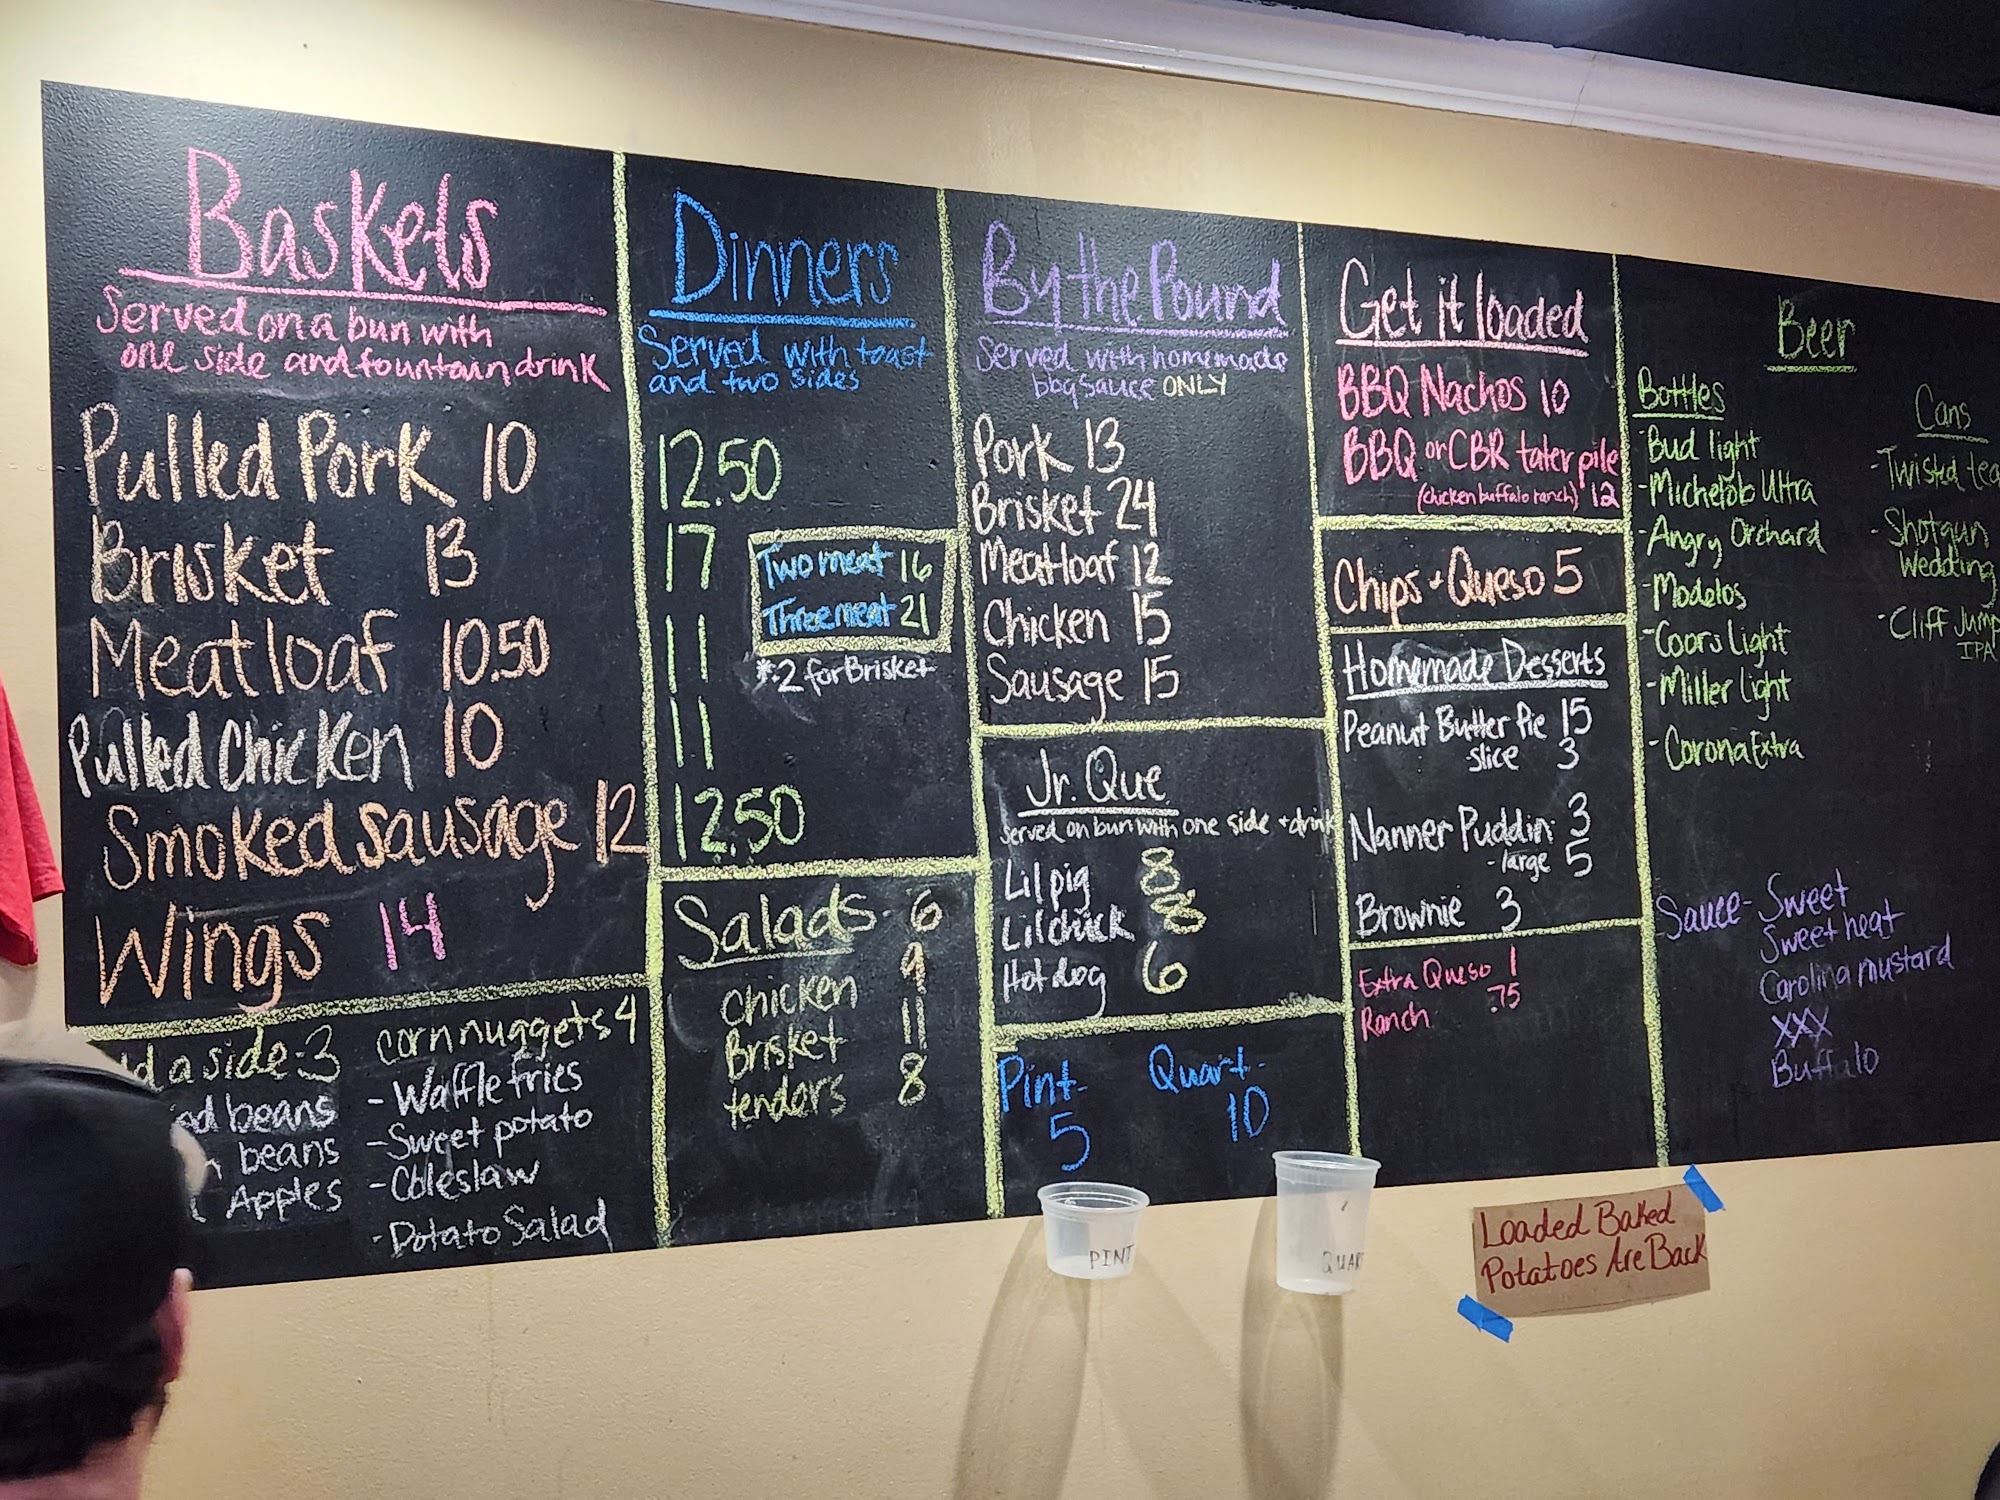 Baskets
Served on a bun with
one side and fountain drink
Pulled Pork 10
Brisket 13
Meatloaf 10.50
Pulled Chicken 10
Smoked sausage 12
Wings 14
a side-3
beans
beans
Apples
corn nuggets 4
-Waffle fries
-Sweet potato
-Coleslaw
-Potato Salad
Dinners
Served with toast
and two sides
12.50
17
11
11
12.50
Two meat 16
Three meat 21
*.2 for Brisket
Salads - 6
chicken 9
Brisket 11
tenders 8
By the Pound
Served with homemade
bbq sauce ONLY
Pork 13
Brisket 24
Meatloaf 12
Chicken 15
Sausage 15
Jr. Que
served on bun with one side + drink
Lil pig 8
Lil chick
Hot dog 6
Pint-
5
Quart-
10
PINT
Get it loaded
BBQ Nachos 10
BBQ or CBR tater pile
(chicken buffalo ranch) 12
Chips + Queso 5
Homemade Desserts
Peanut Butter Pie 15
slice 3
Nanner Puddin 3
-large 5
Brownie 3
Extra Queso 1
Ranch .75
Beer
Bottles
-Bud light
-Michelob Ultra
-Angry Orchard
-Modelos
-Coors Light
-Miller light
-Corona Extra
Cans
-Twisted tea
-Shotgun
Wedding
-Cliff Jump
IPA
Sauce- Sweet
Sweet heat
Carolina mustard
XXX
Buffalo
Loaded Baked
Potatoes Are Back